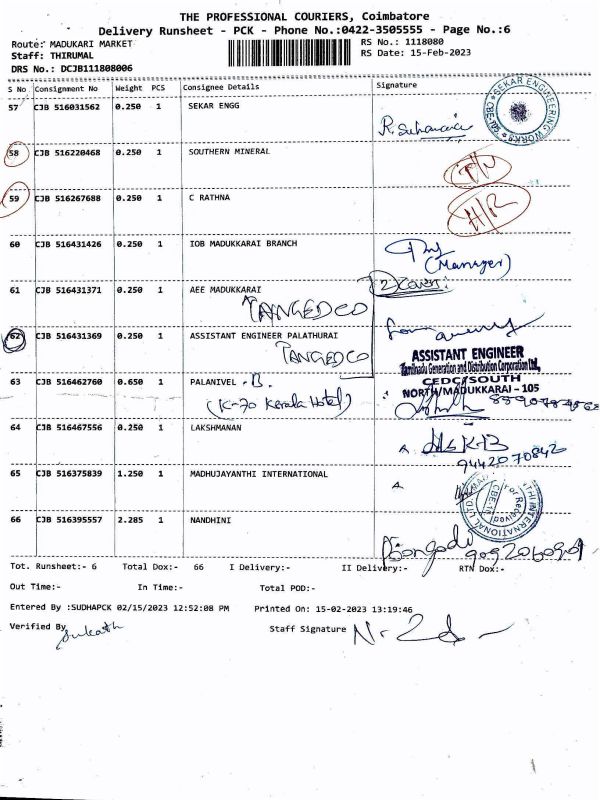 THE PROFESSIONAL COURIERS, Coimbatore
Delivery Runsheet - PCK - Phone No.:0422-3505555 - Page No.:6
Route: MADUKARI MARKET
RS No.: 1118080
Staff: THIRUMAL
RS Date: 15-Feb-2023
DRS No.: DCJB111808006
S No Consignment No Weight PCS Consignee Details Signature
57 CJB 516031562 0.250 1 SEKAR ENGG
SEKAR ENGINEERING WORKS
58 CJB 516220468 0.250 1 SOUTHERN MINERAL
59 CJB 516267688 0.250 1 C RATHNA
60 CJB 516431426 0.250 1 IOB MADUKKARAI BRANCH
(Manager)
61 CJB 516431371 0.250 1 AEE MADUKKARAI
TANGEDCO
62 CJB 516431369 0.250 1 ASSISTANT ENGINEER PALATHURAI
TANGEDCO
ASSISTANT ENGINEER
Tamilnadu Generation and Distribution Corporation Ltd,
CEDC/SOUTH
NORTH/MADUKKARAI - 105
63 CJB 516462760 0.650 1 PALANIVEL - B.
(K-70 Kerala Hotel)
64 CJB 516467556 0.250 1 LAKSHMANAN
9442070842
65 CJB 516375839 1.250 1 MADHUJAYANTHI INTERNATIONAL
66 CJB 516395557 2.285 1 NANDHINI
Tot. Runsheet:- 6 Total Dox:- 66 I Delivery:- II Delivery:- RTN Dox:-
Out Time:- In Time:- Total POD:-
Entered By :SUDHAPCK 02/15/2023 12:52:08 PM Printed On: 15-02-2023 13:19:46
Verified By
Staff Signature